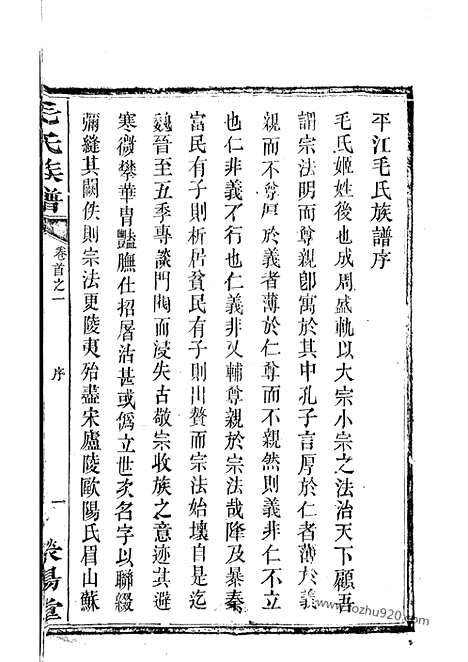 平江毛氏族譜序
毛氏姬姓後也成周盛軌以大宗小宗之法治天下顧吾
謂宗法明而尊親卽寓於其中孔子言厚於仁者薄於義
親而不尊厚於義者薄於仁尊而不親然則義非仁不立
也仁非義不行也仁義非又輔尊親於宗法哉降及暴秦
富民有子則析居貧民有子則出贅而宗法始壞自是迄
魏晉至五季專談門閥而浸失古敬宗收族之意迹其避
寒微攀華胄豔膴仕招屠沽甚或僞立世次名字以聯綴
彌縫其闕佚則宗法更陵夷殆盡宋廬陵歐陽氏眉山蘇
毛氏族譜
卷首之一
序
一
滎陽堂
www.fozhu920.com